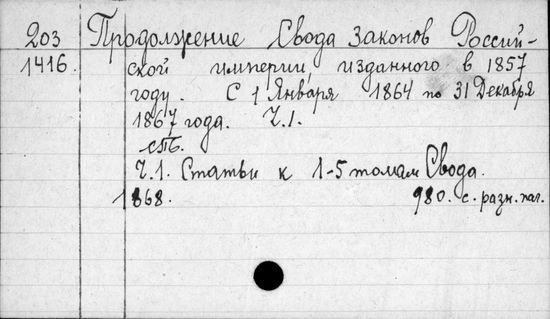 203 Продолжение Свода Законов Россий-
1416. ской империи, изданного в 1857
году. С 1 Января 1864 по 31 Декабря
1867 года. Ч.1.
СПБ.
Ч.1. Статьи к 1-5 томам Свода.
1868. 980. с. разн. паг.